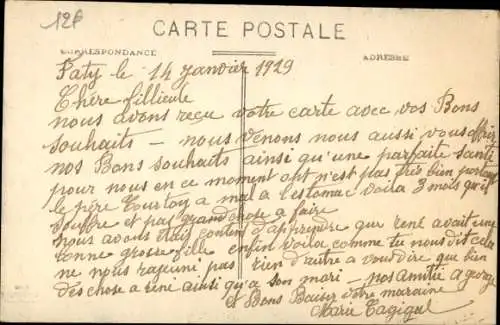 12f
CARTE POSTALE
CORRESPONDANCE
ADRESSE
Paty le 14 Janvier 1929
Chére fillieule
nous avons reçu votre carte avec vos Bons
souhaits — nous venons nous aussi vous offrir
nos Bons souhaits ainsi qu'une parfaite santé
pour nous en ce moment on n'est pas très bien portant
le père a mal a l'estomac voila 3 mois qu'il
souffre et pas grand chose a faire
nous avons était content d'apprendre que rené avait une
bonne grosse fille enfin voila comme tu nous dit cela
ne nous rajeuni pas rien d'autre a vous dire que bien
des chose a réné ainsi qu'a son mari — nos amitié a george
et Bons Baiser votre maraine
Marie